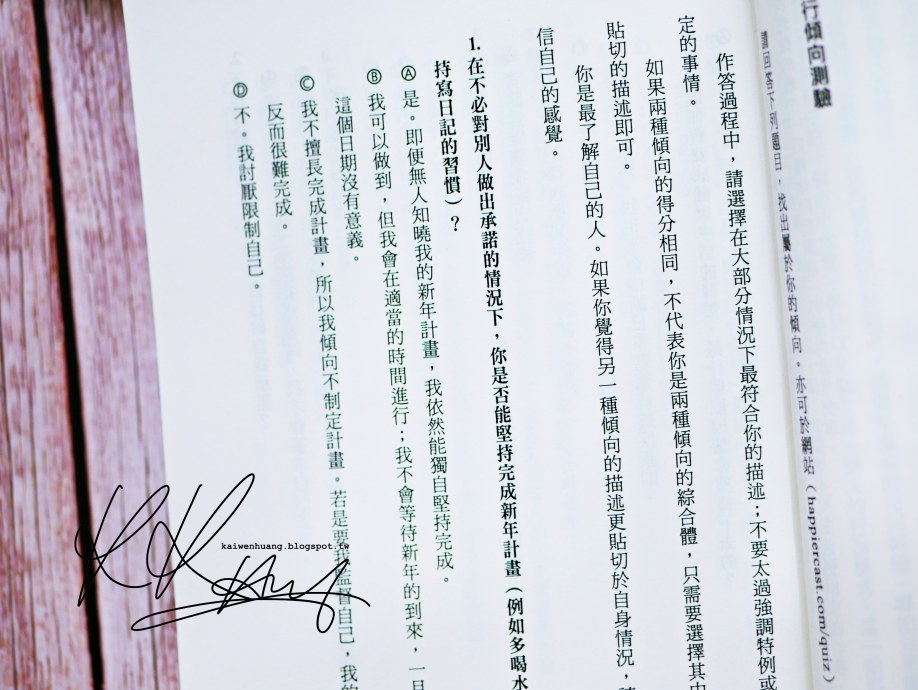 行傾向測驗
請回答下列題目，找出屬於你的傾向。亦可於網站（happiercast.com/quiz）
作答過程中，請選擇在大部分情況下最符合你的描述；不要太過強調特例或
定的事情。
如果兩種傾向的得分相同，不代表你是兩種傾向的綜合體，只需要選擇其中
貼切的描述即可。
你是最了解自己的人。如果你覺得另一種傾向的描述更貼切於自身情況，
信自己的感覺。
1. 在不必對別人做出承諾的情況下，你是否能堅持完成新年計畫（例如多喝水
持寫日記的習慣）？
Ⓐ 是。即便無人知曉我的新年計畫，我依然能獨自堅持完成。
Ⓑ 我可以做到，但我會在適當的時間進行；我不會等待新年的到來，一月
這個日期沒有意義。
Ⓒ 我不擅長完成計畫，所以我傾向不制定計畫。若是要我監督自己，我的
反而很難完成。
Ⓓ 不。我討厭限制自己。
kaiwenhuang.blogspot.tw